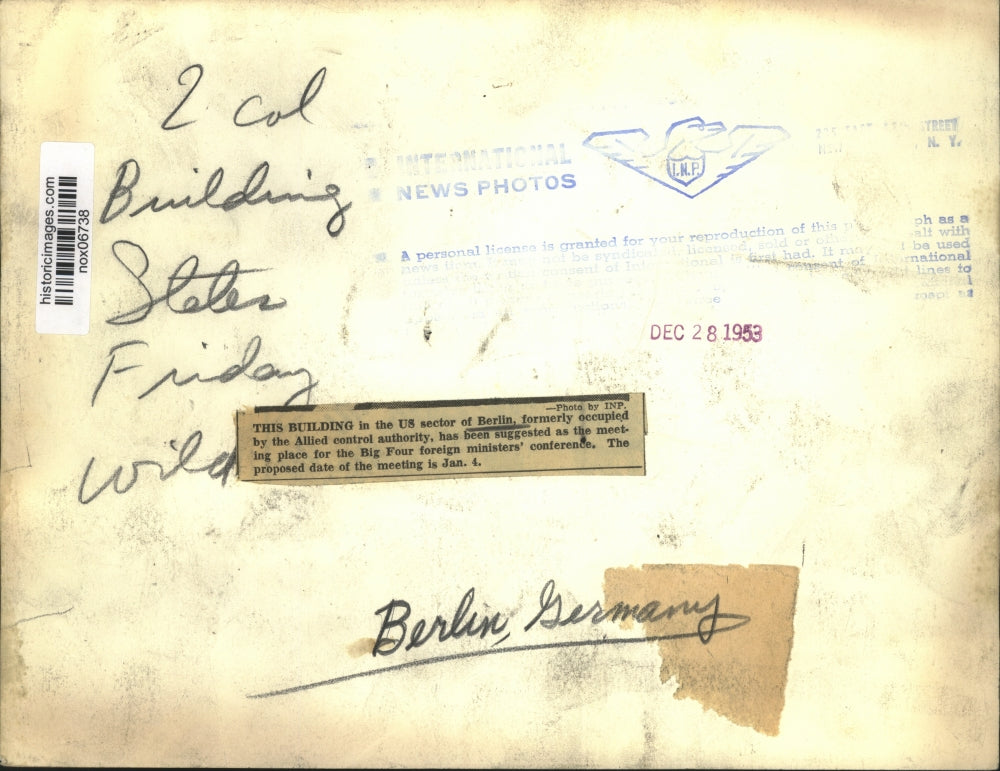 2 col
Building
States
Friday
wild
historicimages.com
nox06738
INTERNATIONAL
NEWS PHOTOS
I.N.P.
STREET
N. Y.
A personal license is granted for your reproduction of this ph as a
news not be syndicated, licensed, sold or
consent of first had. It
be used
lines to
DEC 28 1953
—Photo by INP.
THIS BUILDING in the US sector of Berlin, formerly occupied
by the Allied control authority, has been suggested as the meet-
ing place for the Big Four foreign ministers' conference. The
proposed date of the meeting is Jan. 4.
Berlin, Germany